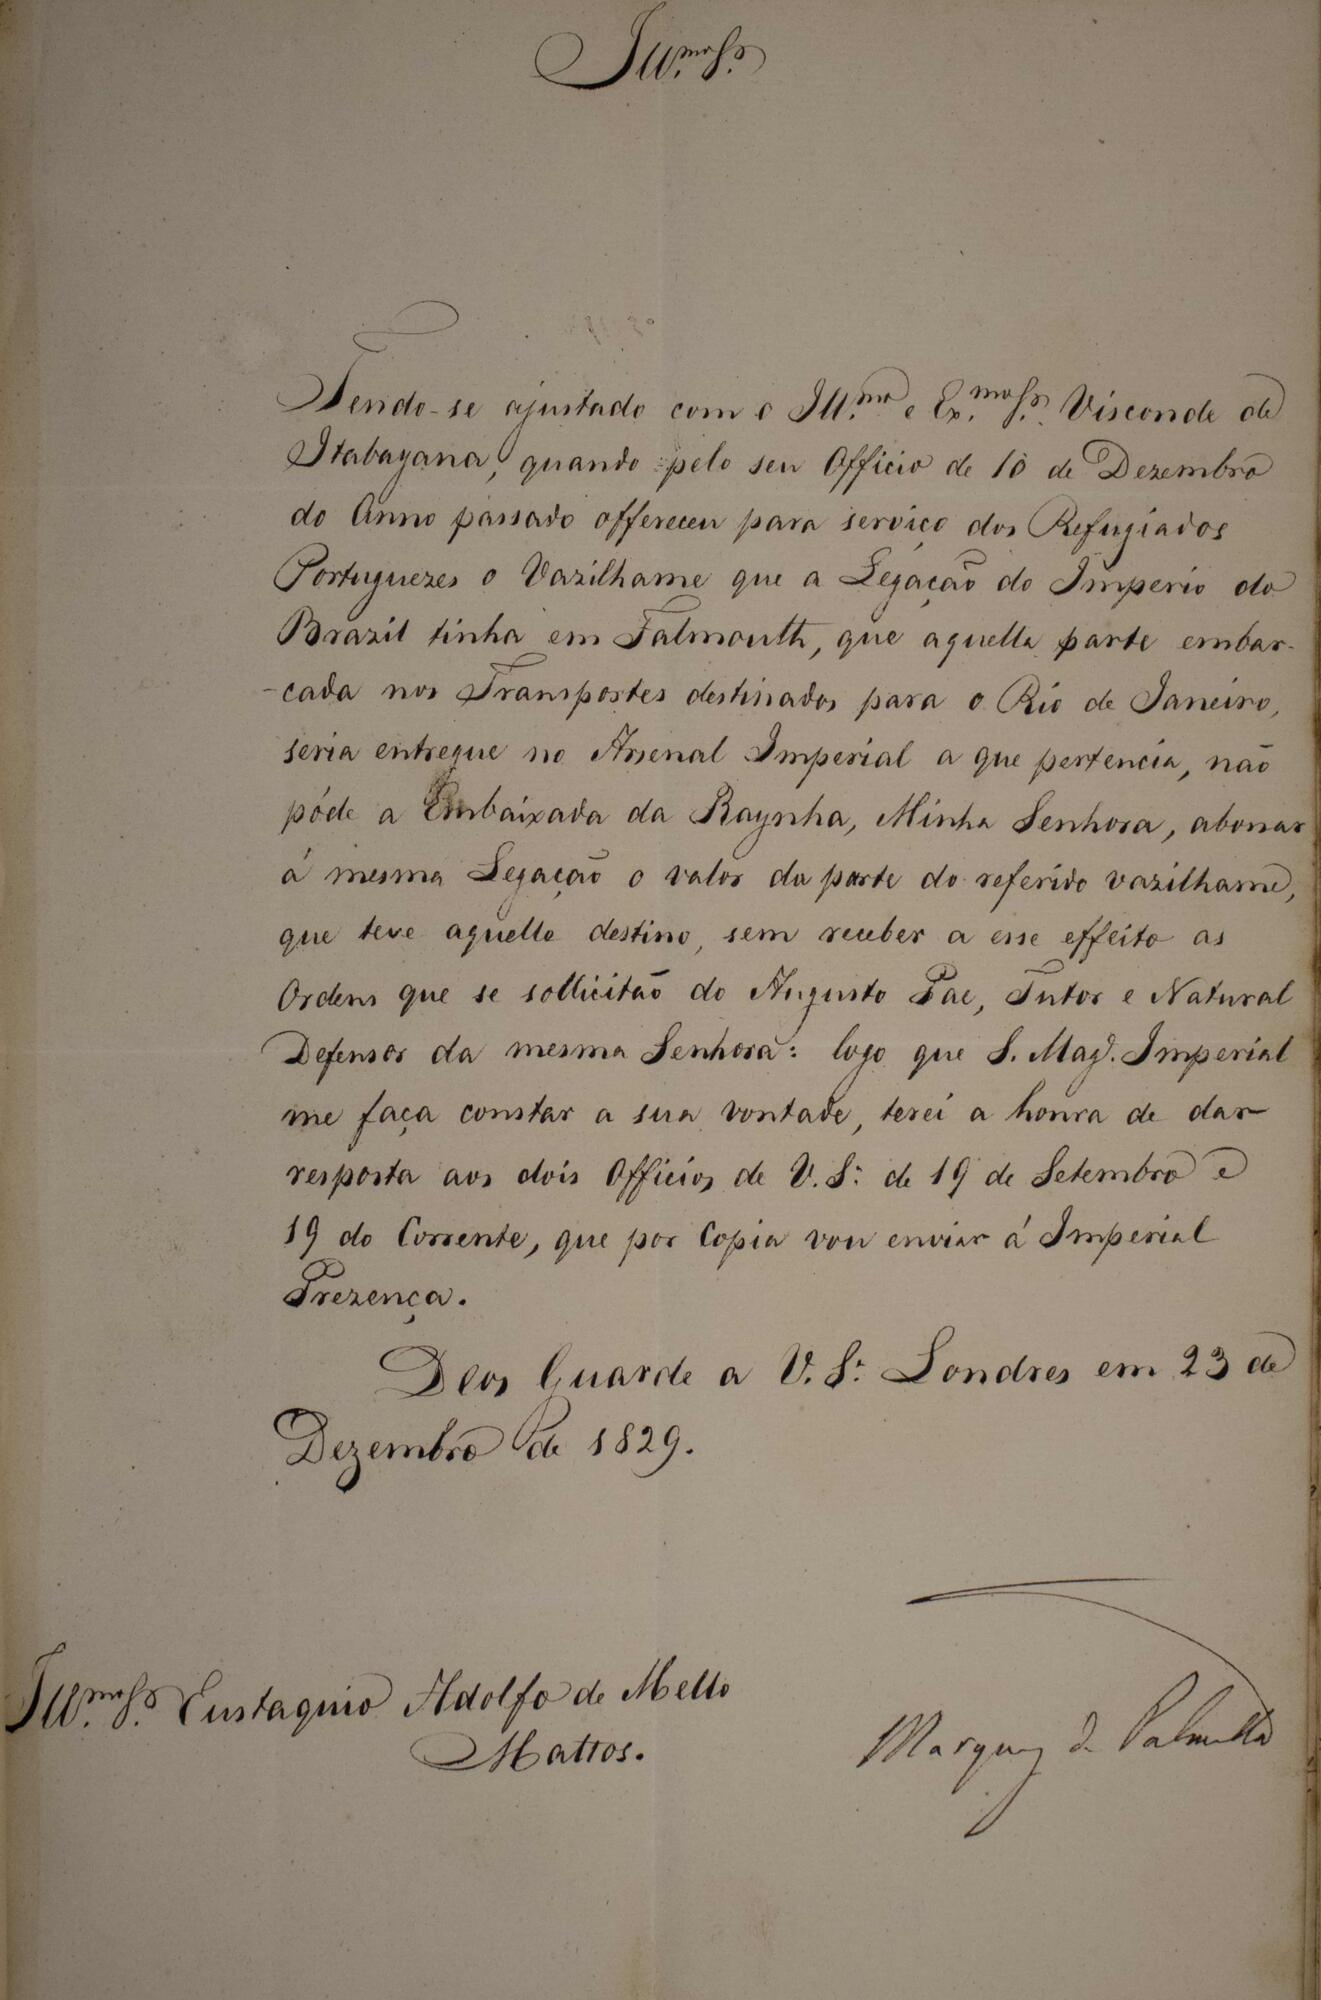 Ill.mo Sr.
Tendo-se ajustado com o Ill.mo e Ex.mo Sr. Visconde de
Itabayana, quando pelo seu Officio de 10 de Dezembro
do Anno passado offereceu para serviço dos Refugiados
Portuguezes o Vazilhame que a Legação do Imperio do
Brazil tinha em Falmouth, que aquella parte embar-
-cada nos Transportes destinados para o Rio de Janeiro,
seria entregue no Arsenal Imperial a que pertencia, não
póde a Embaixada da Raynha, Minha Senhora, abonar
á mesma Legação o valor da parte do referido vazilhame,
que teve aquelle destino, sem receber a esse effeito as
Ordens que se sollicitão do Augusto Pae, Tutor e Natural
Defensor da mesma Senhora: logo que S. Magd. Imperial
me faça constar a sua vontade, terei a honra de dar
resposta aos dois Officios de V. Sa. de 19 de Setembro e
19 do Corrente, que por Copia vou enviar á Imperial
Prezença.
Deos Guarde a V. Sa. Londres em 23 de
Dezembro de 1829.
Ill.mo Sr. Eustaquio Adolfo de Mello
Mattos.
Marquez de Palmella